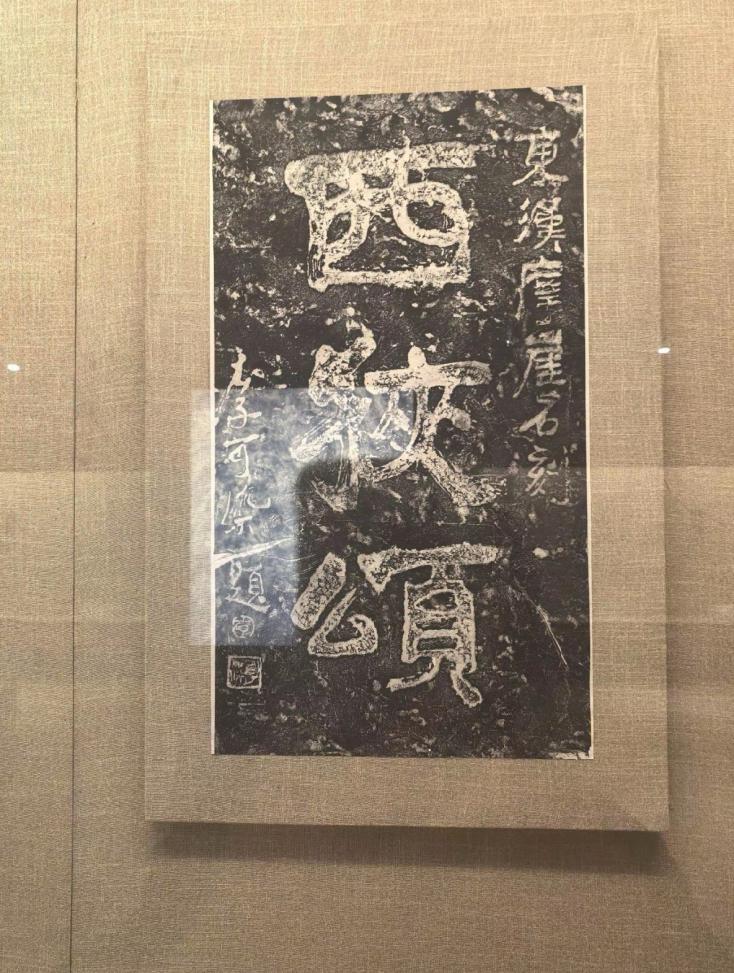 東漢摩崖石刻
西狹頌
李可染題